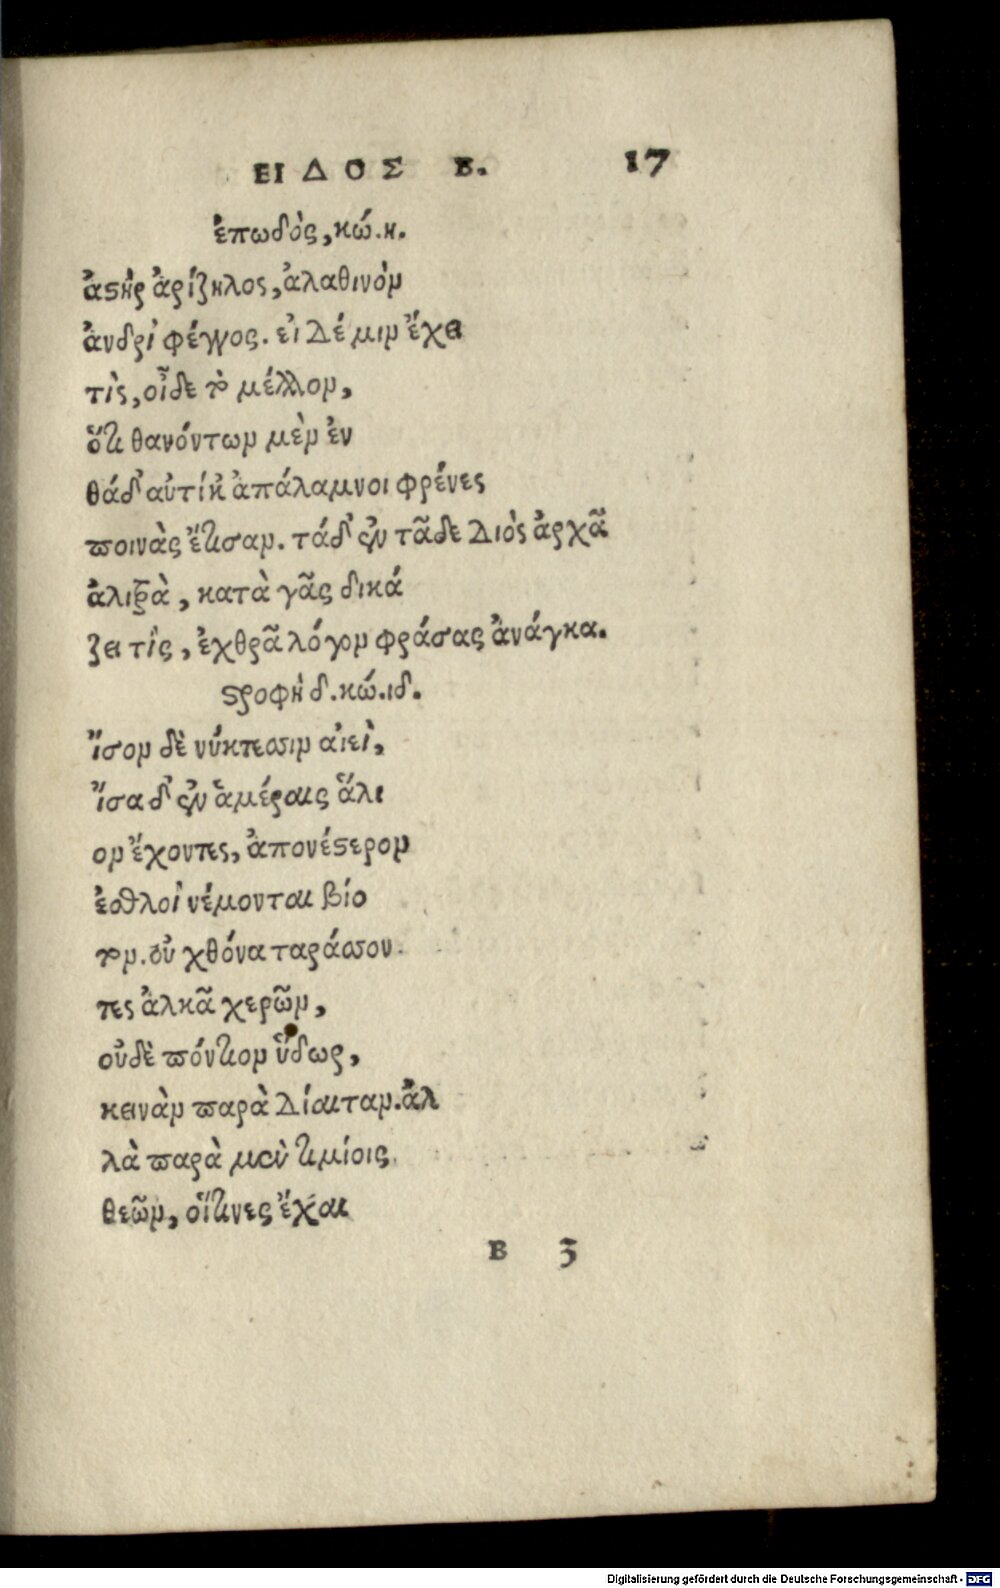 ΕΙΔΟΣ Β. 17
ἐπωδὸς, κώ. η.
ἀστὴρ ἀρίζηλος, ἀλαθινὸν
ἀνδρὶ φέγγος. εἰ δέ μιν ἔχει
τὶς, οἶδε τὸ μέλλον,
ὅτι θανόντων μὲν ἐν
θάδ' αὐτίκ' ἀπάλαμνοι φρένες
ποινὰς ἔτισαν. τάδ' ἐν τᾶδε Διὸς ἀρχᾶ
ἀλιτρὰ, κατὰ γᾶς δικά
ζει τὶς, ἐχθρᾶ λόγον φράσας ἀνάγκα.
στροφὴ δ. κώ. ιδ.
ἴσον δὲ νύκτεσσιν αἰεὶ,
ἴσα δ' ἐν ἁμέραις ἅλι
ον ἔχοντες, ἀπονέστερον
ἐσθλοὶ νέμονται βίο
τον. οὐ χθόνα ταράσσον
τες ἀλκᾶ χερῶν,
οὐδὲ πόντιον ὕδωρ,
κεινὰν παρὰ Δίαιταν. ἀλ
λὰ παρὰ μὲν τιμίοις
θεῶν, οἵτινες ἔχαι
Β 3
Digitalisierung gefördert durch die Deutsche Forschungsgemeinschaft - DFG